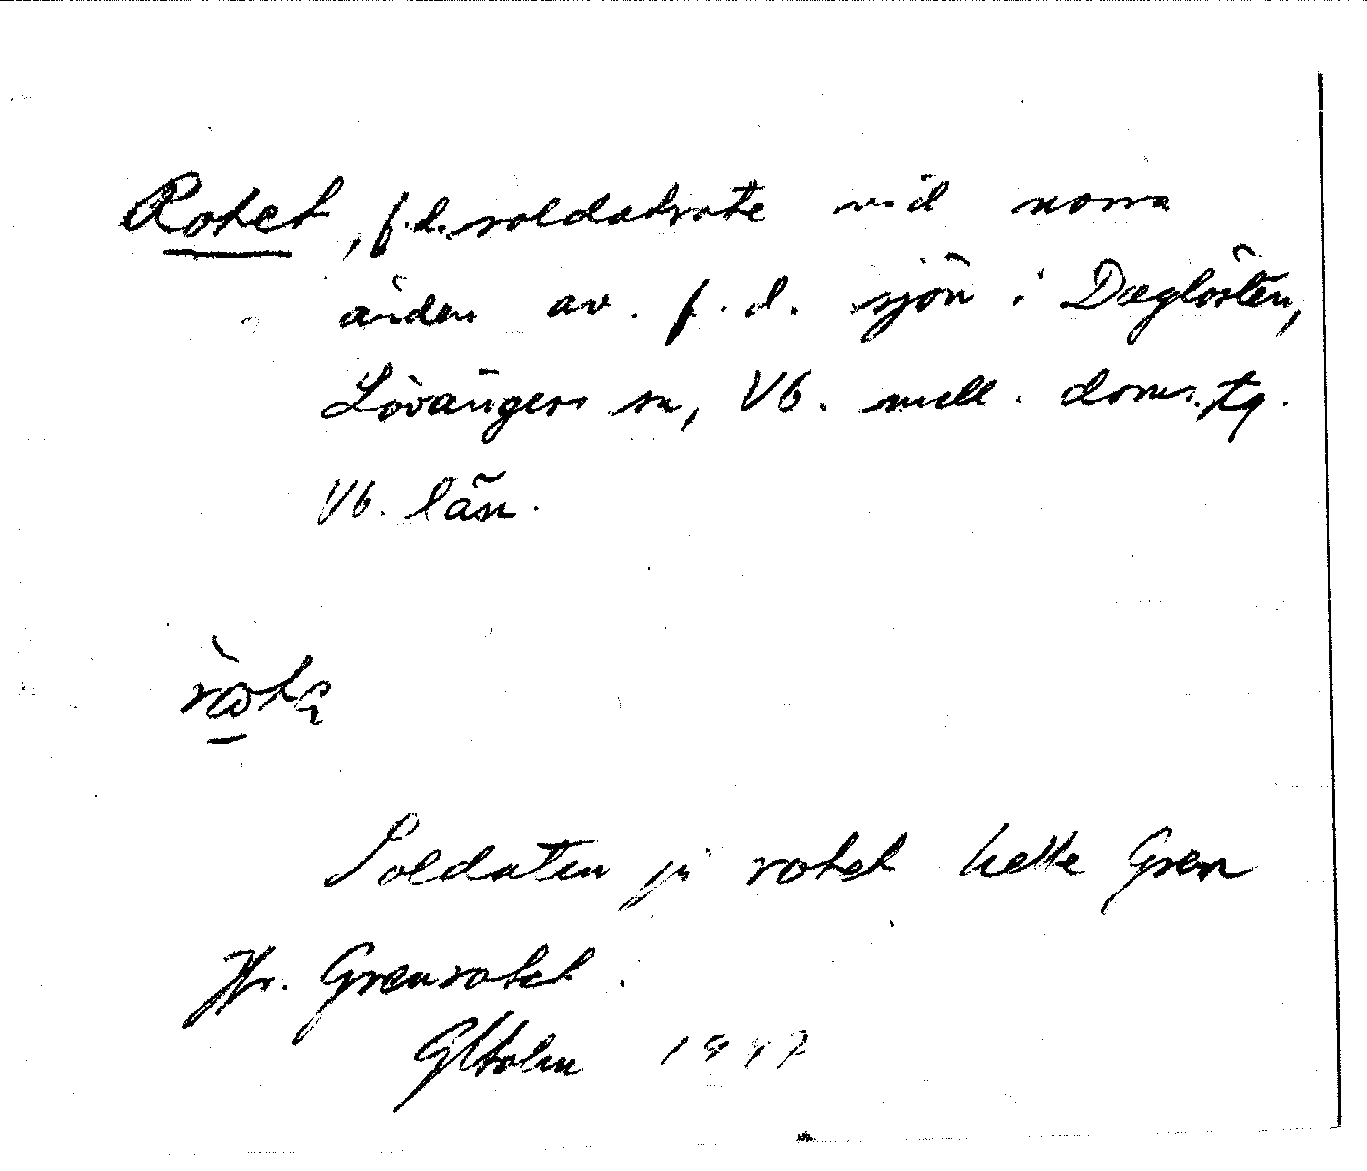 Rotet, f.d. soldatrote vid norra
änden av. f.d. sjön i Daglösten,
Lövångers sn, Vb. mell. doms.tg.
Vb. län.
Soldaten på rotet hette Gren
Jfr. Grenrotet.
GHolm 1947